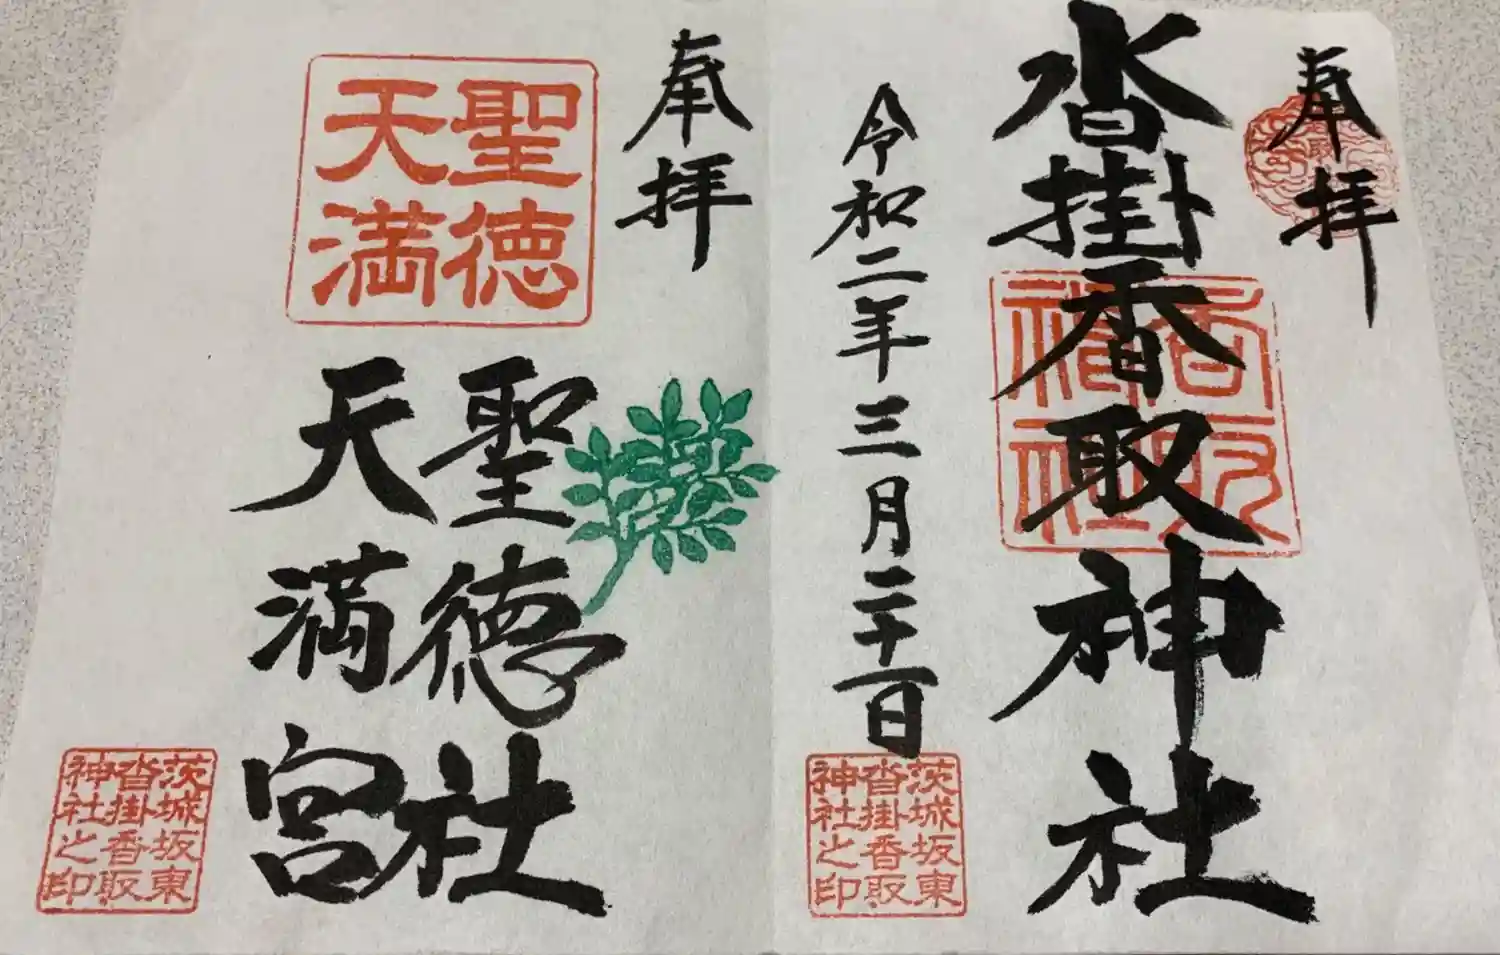 奉拝
沓掛香取神社
香取
神社
令和二年三月二十一日
茨城坂東
沓掛香取
神社之印
奉拝
聖徳
天満
聖徳社
天満宮
茨城坂東
沓掛香取
神社之印